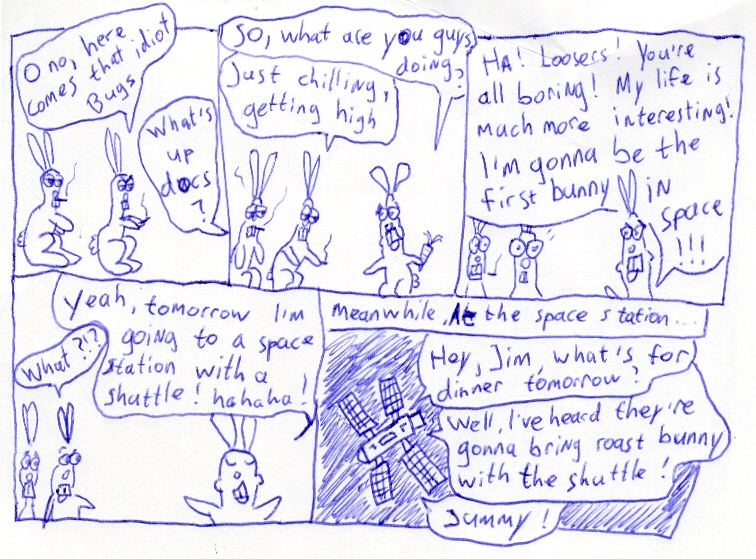 O no, here
comes that idiot
Bugs
What's
up
docs
?
So, what are you guys
doing?
Just chilling,
getting high
HA! Loosers! You're
all boring! My life is
much more interesting!
I'm gonna be the
first bunny in
space
!!!
Yeah, tomorrow I'm
going to a space
station with a
shuttle! hahaha!
What?!?
meanwhile, At the space station...
Hey, Jim, what's for
dinner tomorrow?
Well, I've heard they're
gonna bring roast bunny
with the shuttle!
Jummy!